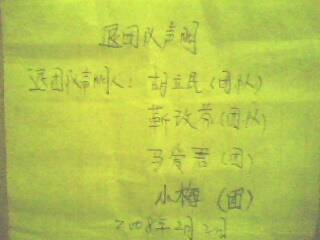 退团队声明
退团队声明人：胡立民（团队）
靳改芬（团队）
马爱君（团）
小梅（团）
2008年2月2日